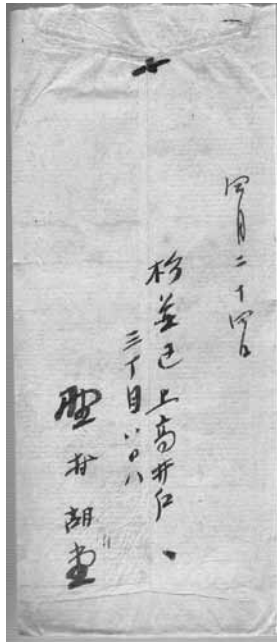 四月二十四日
杉並区上高井戸
三丁目八〇八
野村胡堂